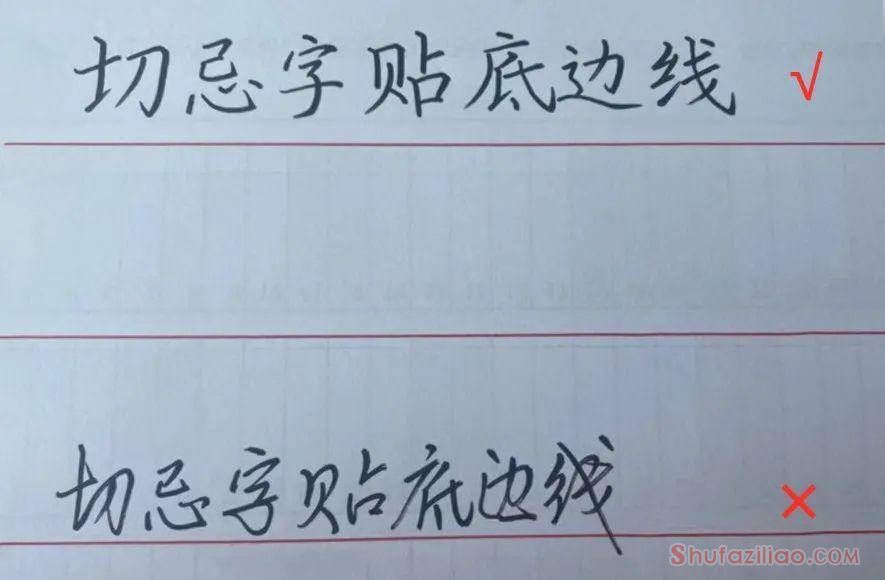 切忌字贴底边线 √
切忌字贴底边线 ×
Shufaziliao.com